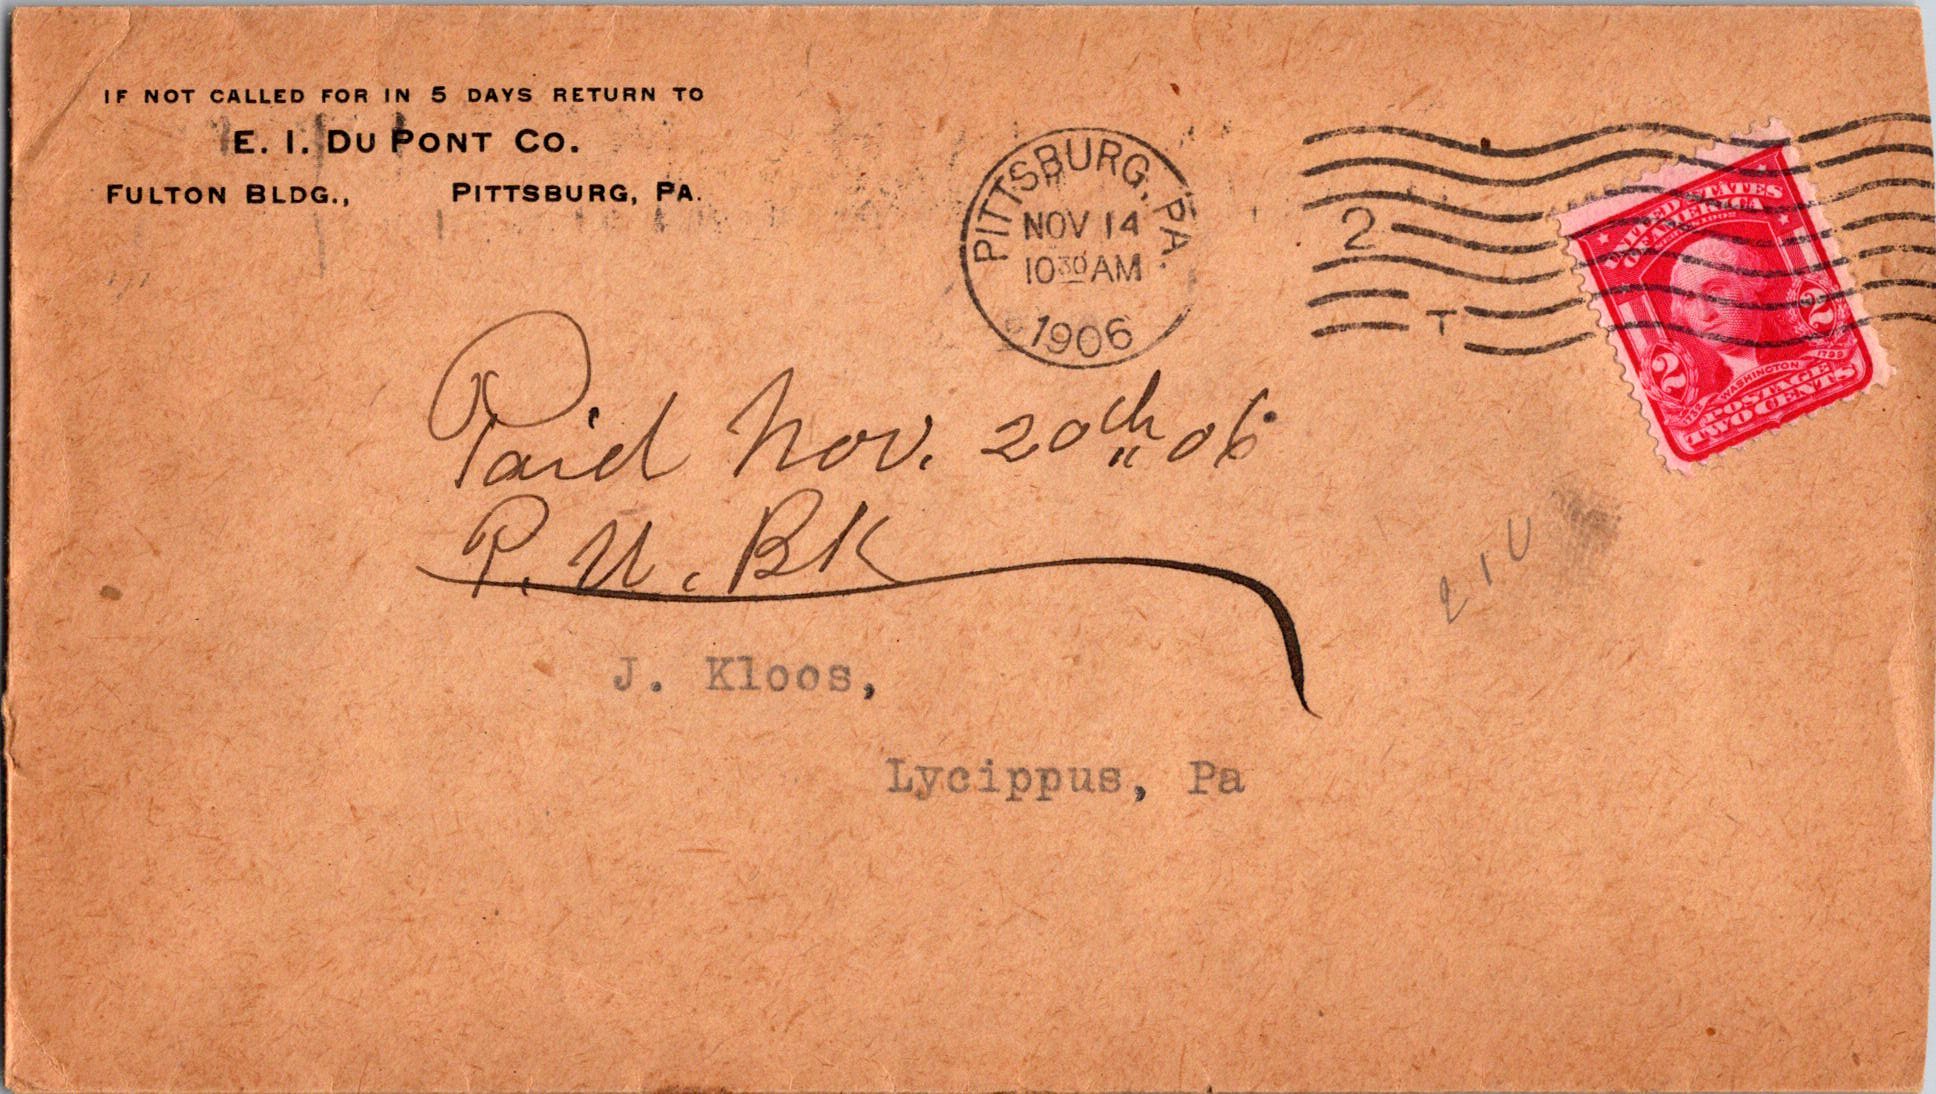 IF NOT CALLED FOR IN 5 DAYS RETURN TO
E. I. DU PONT CO.
FULTON BLDG., PITTSBURG, PA.
PITTSBURG, PA.
NOV 14
10 30 AM
1906
2
T
UNITED STATES
OF AMERICA
SERIES 1902
2 2
1732 WASHINGTON 1799
POSTAGE
TWO CENTS
Paid Nov. 20th 06
P. U. BK
J. Kloos,
Lycippus, Pa